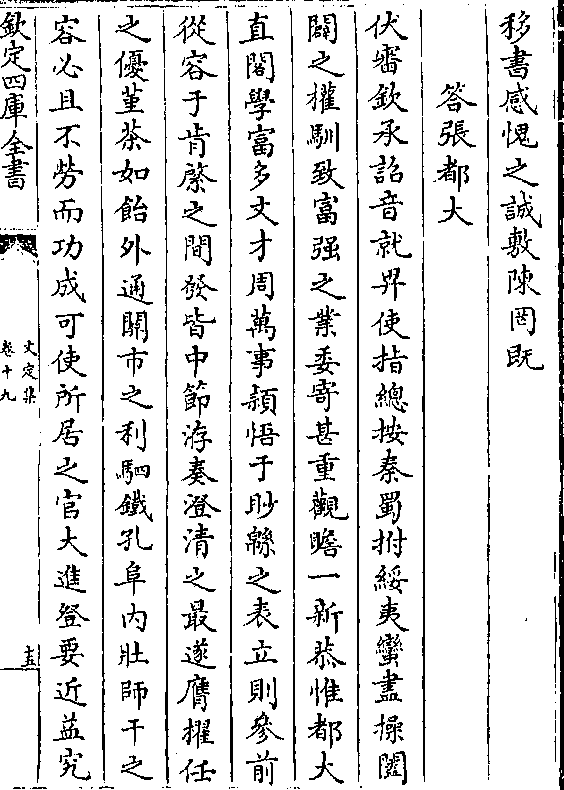 移書感愧之誠敷陳罔既
答張都大
伏審欽承詔音就畀使指總按秦蜀拊綏夷蠻盡操闔
闢之權馴致富强之業委寄甚重觀瞻一新恭惟都大
直閣學富多文才周萬事頴悟于眇緜之表立則參前
從容于肯綮之間發皆中節洊奏澄清之最遂膺擢任
之優堇荼如飴外通關市之利駟鐵孔阜内壯師干之
容必且不勞而功成可使所居之官大進登要近益究
欽定四庫全書
文定集
卷十九